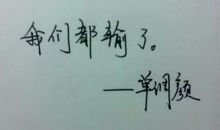 我们都输了。
——单润颜